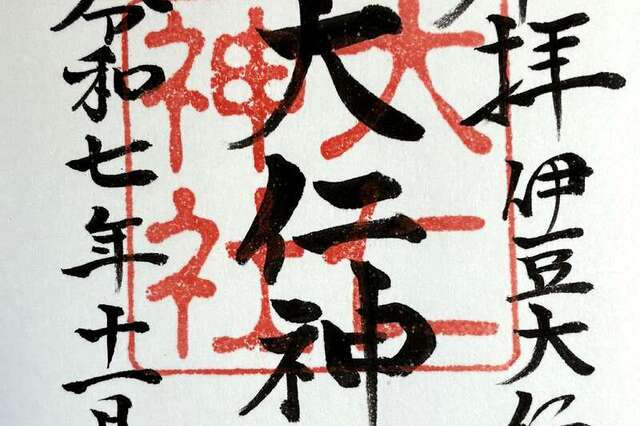 拝 伊豆大仁
大仁神
令和七年十一月
大仁
神社